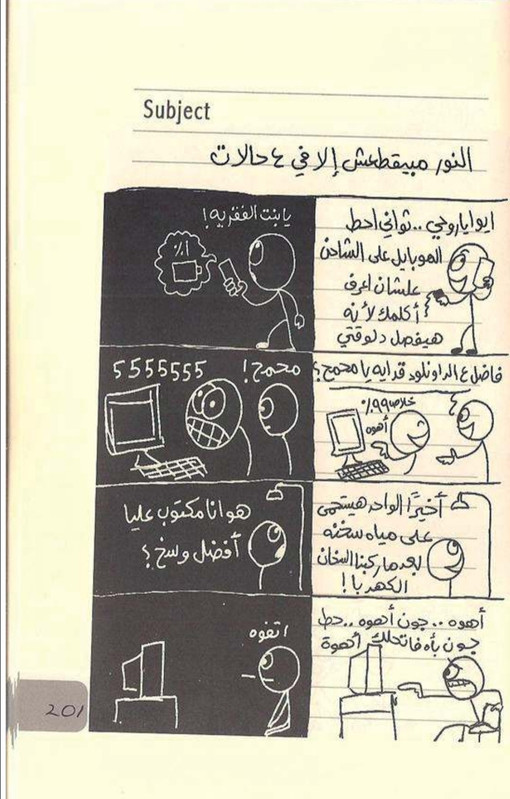 Subject
النور مبيقطعش إلا في ٤ حالات
ايوا ياروحي .. ثواني احط
الموبايل على الشاحن
علشان اعرف
أكلمك لأنه
هيفصل دلوقتي
يا بنت الفقريه !
١٪
فاضل ع الداونلود قد ايه يا محمح ؟
خلاص ٩٩٪
أهوه
محمح !
5555555
أخيرًا الواحد هيستحمى
على مياه سخنه
بعد ما ركبنا السخان
الكهربا !
هو انا مكتوب عليا
أفضل وسخ ؟
أهوه .. جون أهوه .. حط
جون بأه فاتحلك أهوة
اتفوه
201